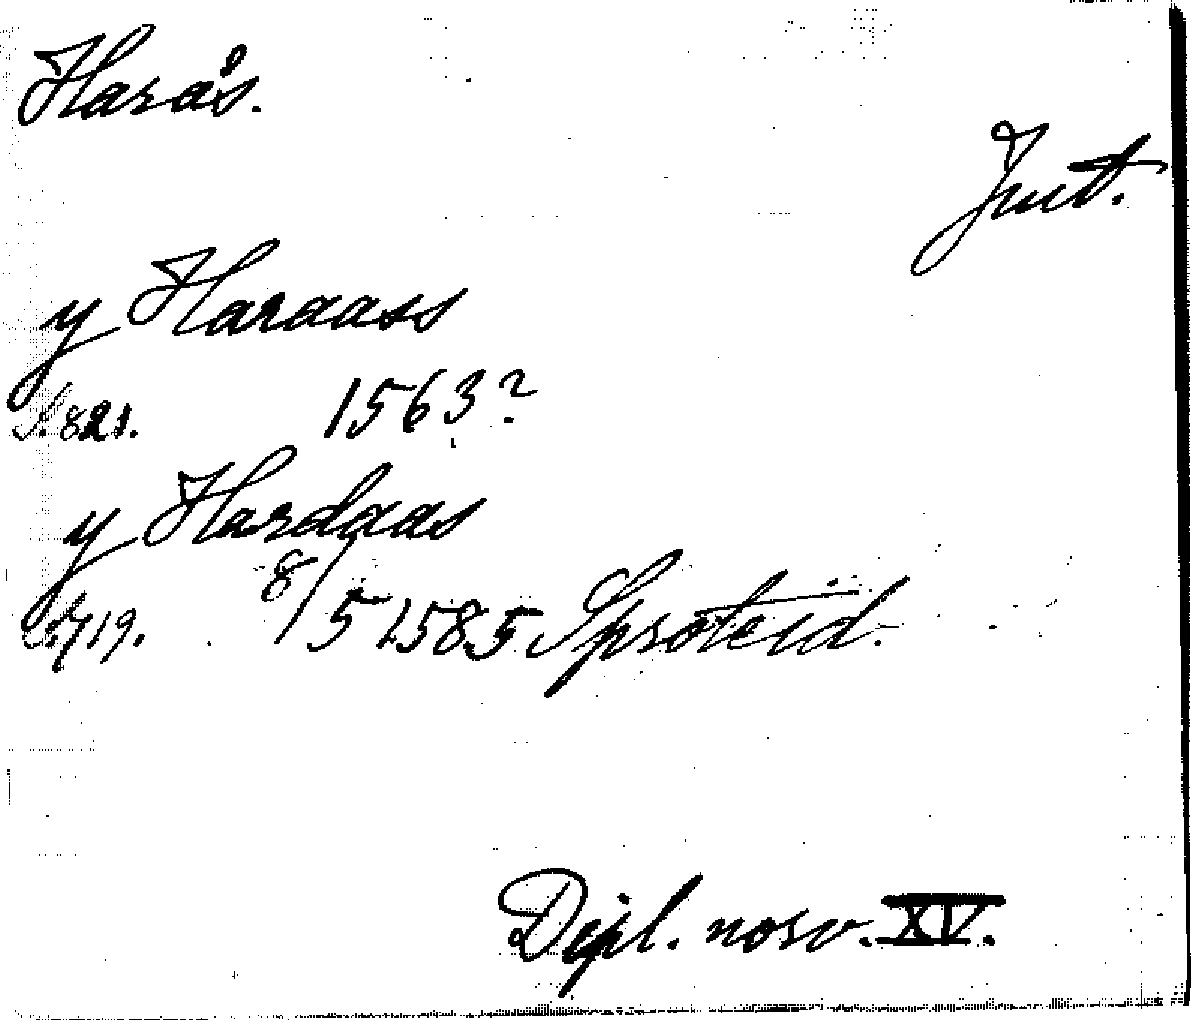 Harås.
Jmt.
y Haraass
S. 821. 1563?
y Hardaas
S. 719. 8/5 1585 Sproteid.
Dipl. norv. XV.